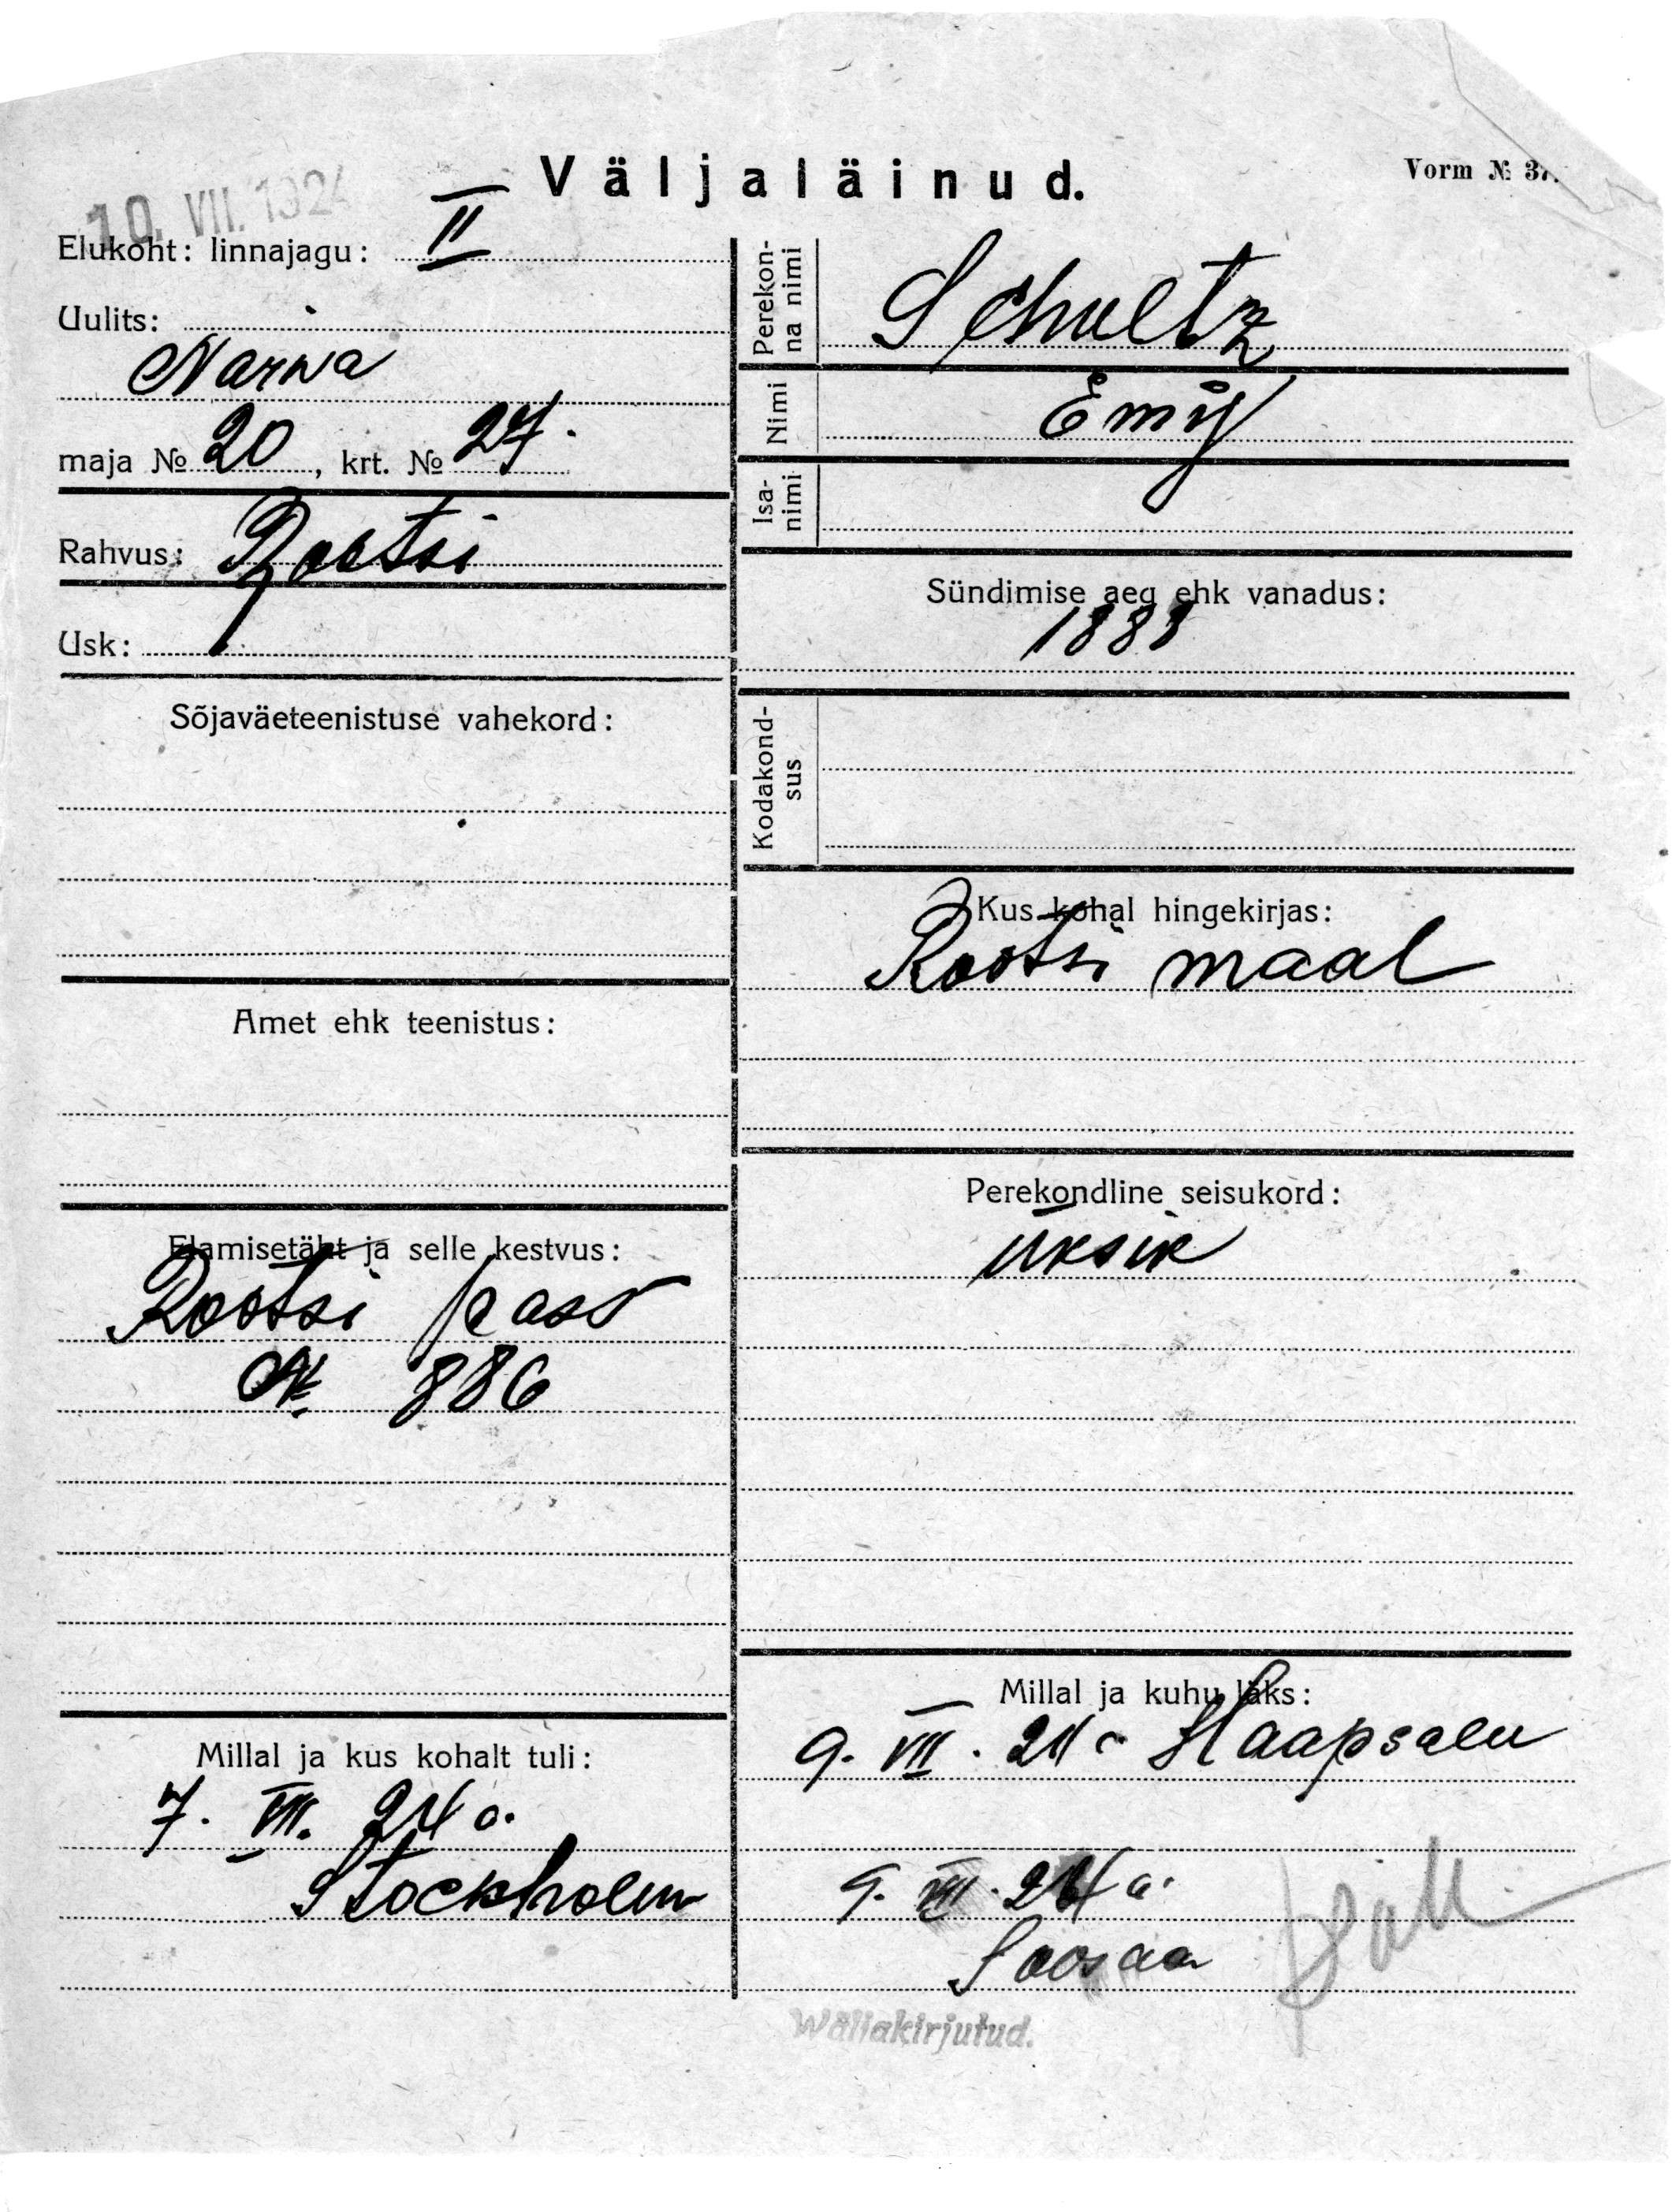 10. VII. 1924
Väljaläinud.
Vorm № 37.
Elukoht: linnajagu: II
Uulits:
Narva
maja № 20, krt. № 27.
Rahvus: Rootsi
Usk:
Sõjaväeteenistuse vahekord:
Amet ehk teenistus:
Elamisetäht ja selle kestvus:
Rootsi pass
№ 886
Millal ja kus kohalt tuli:
7. VII. 24 a.
Stockholm
Perekonna nimi Schultz
Nimi Emy
Isanimi
Sündimise aeg ehk vanadus:
1888
Kodakondsus
Kus kohal hingekirjas:
Rootsi maal
Perekondline seisukord:
üksik
Millal ja kuhu läks:
9. VII. 24 a Haapsalu
9. VII. 24 a.
Wäljakirjutud.